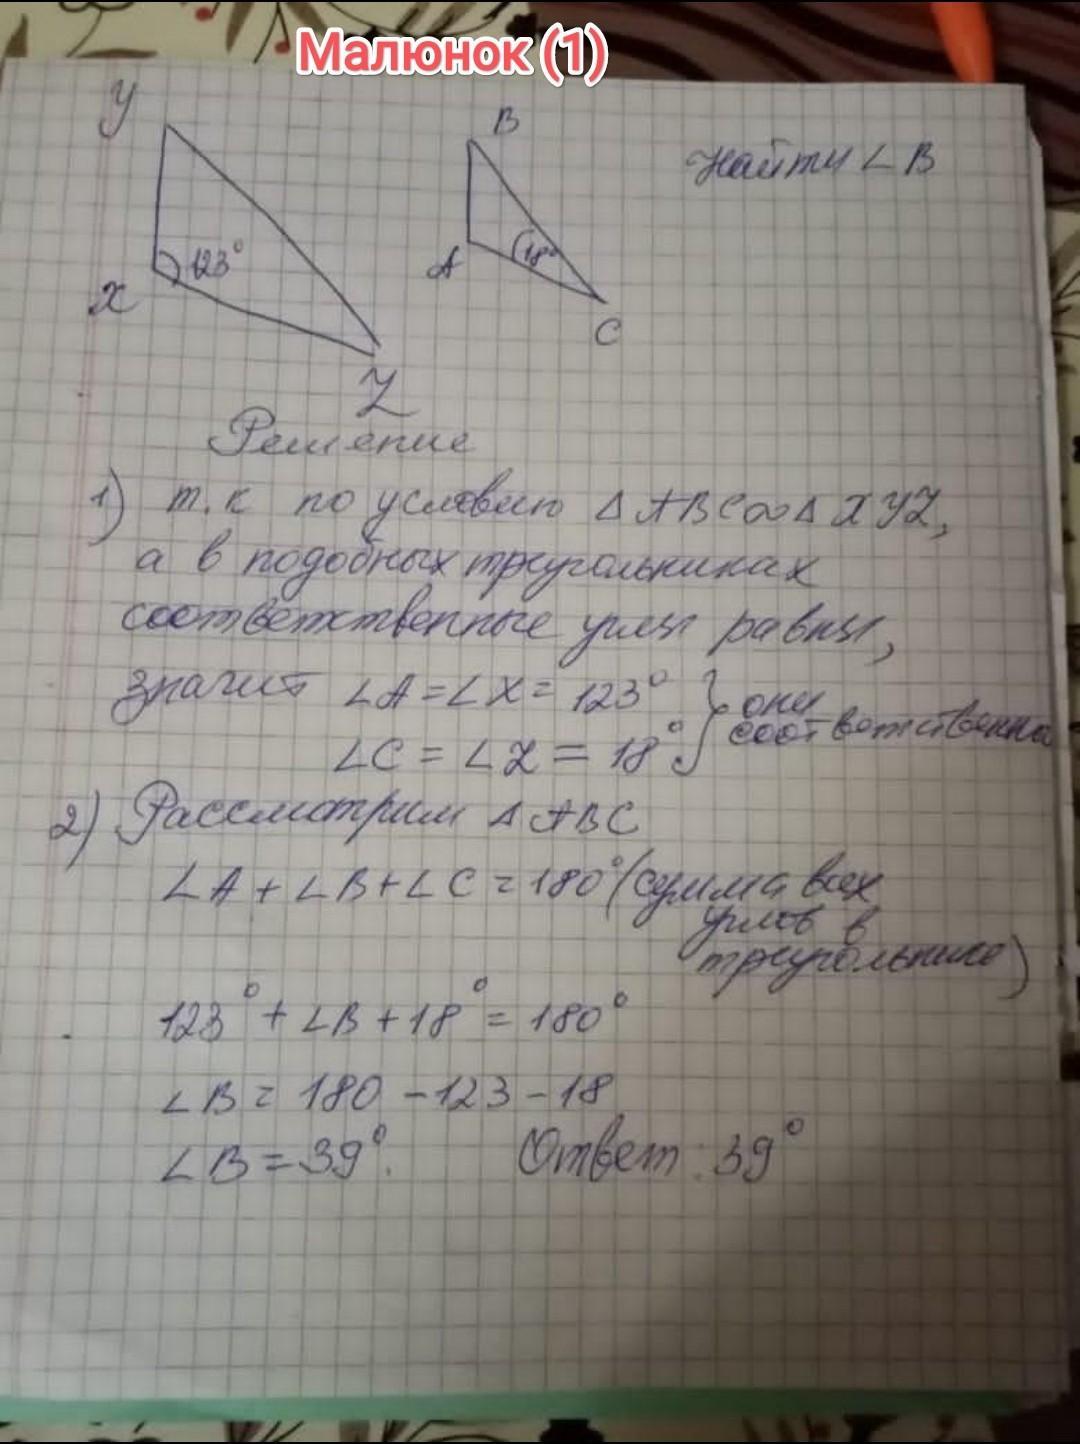 Малюнок (1)
Y
B
Найти ∠ B
X
123°
A
18°
C
Z
Решение
1) т.к по условию Δ ABC ∾ Δ XYZ,
а в подобных треугольниках
соответственные углы равны,
значит ∠A = ∠X = 123° } они
соответственны
∠C = ∠Z = 18°
2) Рассмотрим Δ ABC
∠A + ∠B + ∠C = 180° (сумма всех
углов в
треугольнике)
123° + ∠B + 18° = 180°
∠B = 180 - 123 - 18
∠B = 39°. Ответ: 39°